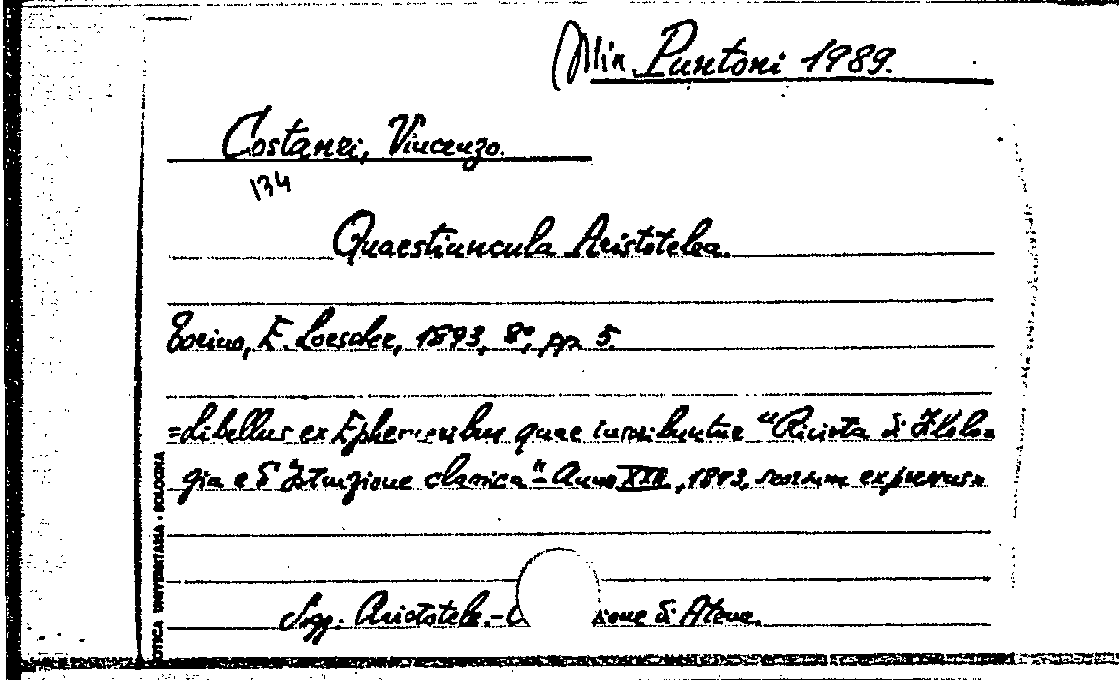 Min. Puntoni 1989.
Costanzi, Vincenzo.
134
Quaestiuncula Aristotelea.
Torino, E. Loescher, 1893, 8°, pp. 5.
=Libellus ex Ephemeribus quae inscribuntur "Rivista di Filolo=
gia e d'Istruzione classica" - Anno XXII, 1893, seorsum expressus=
Sogg. Aristotele. - C ione di Atene.
OTECA UNIVERSITARIA - BOLOGNA